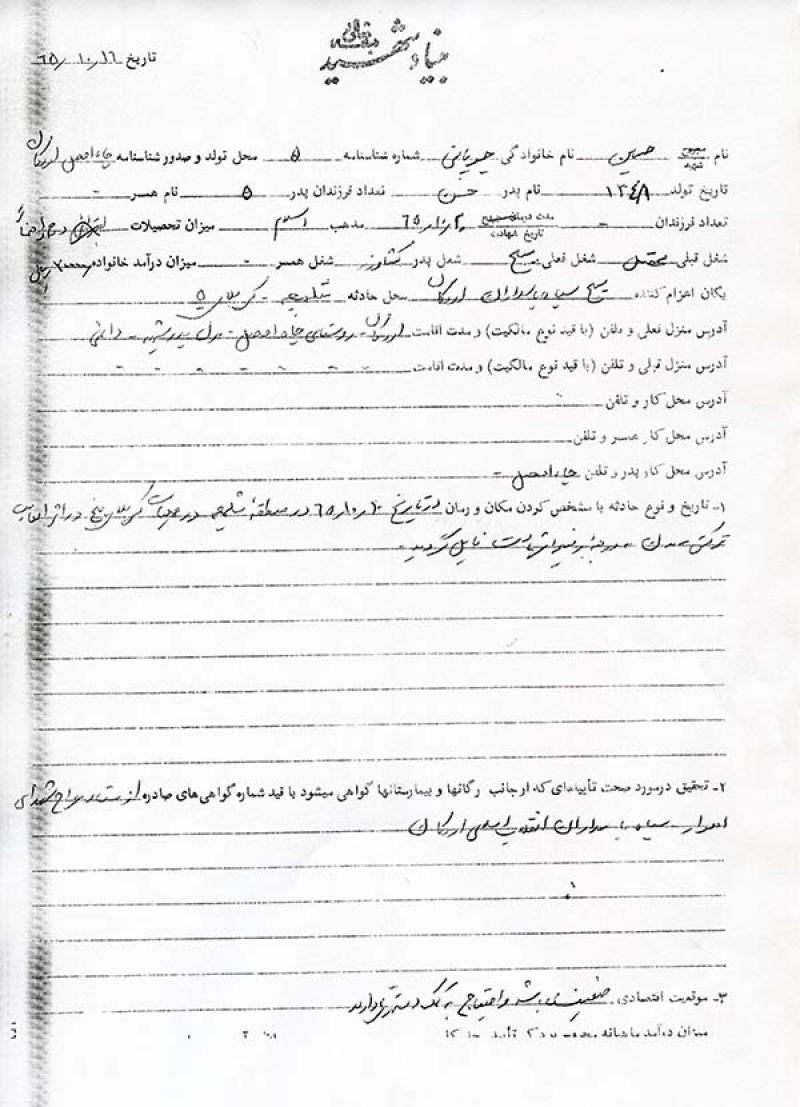 بسمه تعالی
بنیاد شهید
تاریخ ۶۵/۱۰/۱۶
نام مجروح شهید حسین نام خانوادگی چوپانی شماره شناسنامه ۵ محل تولد و صدور شناسنامه چاه افضل اردکان
تاریخ تولد ۱۳۴۸ نام پدر حسن تعداد فرزندان پدر ۵ نام همسر -
تعداد فرزندان - مدت درمان مجروح تاریخ شهادت ۶۵ مذهب اسلام میزان تحصیلات
شغل قبلی محصل شغل فعلی بسیج شغل پدر کشاورز شغل همسر - میزان درآمد خانواده ریال
یگان اعزام کننده بسیج سپاه پاسداران اردکان محل حادثه شلمچه - کربلای ۵
آدرس منزل فعلی و تلفن (با قید نوع مالکیت) و مدت اقامت اردکان - روستای چاه افضل - منزل
آدرس منزل قبلی و تلفن (با قید نوع مالکیت) و مدت اقامت - - - - - - -
آدرس محل کار و تلفن
آدرس محل کار همسر و تلفن
آدرس محل کار پدر و تلفن چاه افضل -
۱- تاریخ و نوع حادثه با مشخص کردن مکان و زمان در تاریخ ۶۵ در منطقهٔ شلمچه در عملیات کربلای پنج در اثر اصابت
ترکش به درجهٔ رفیع شهادت نایل گردید.
۲- تحقیق درمورد صحت تأییدیه‌ای که از جانب ارگانها و بیمارستانها گواهی میشود با قید شماره گواهی‌های صادره از ستاد معراج شهدای
اهواز - سپاه پاسداران انقلاب اسلامی اردکان
۳- موقعیت اقتصادی ضعیف می باشد و احتیاج به کمک دارند
میزان درآمد ماهانه